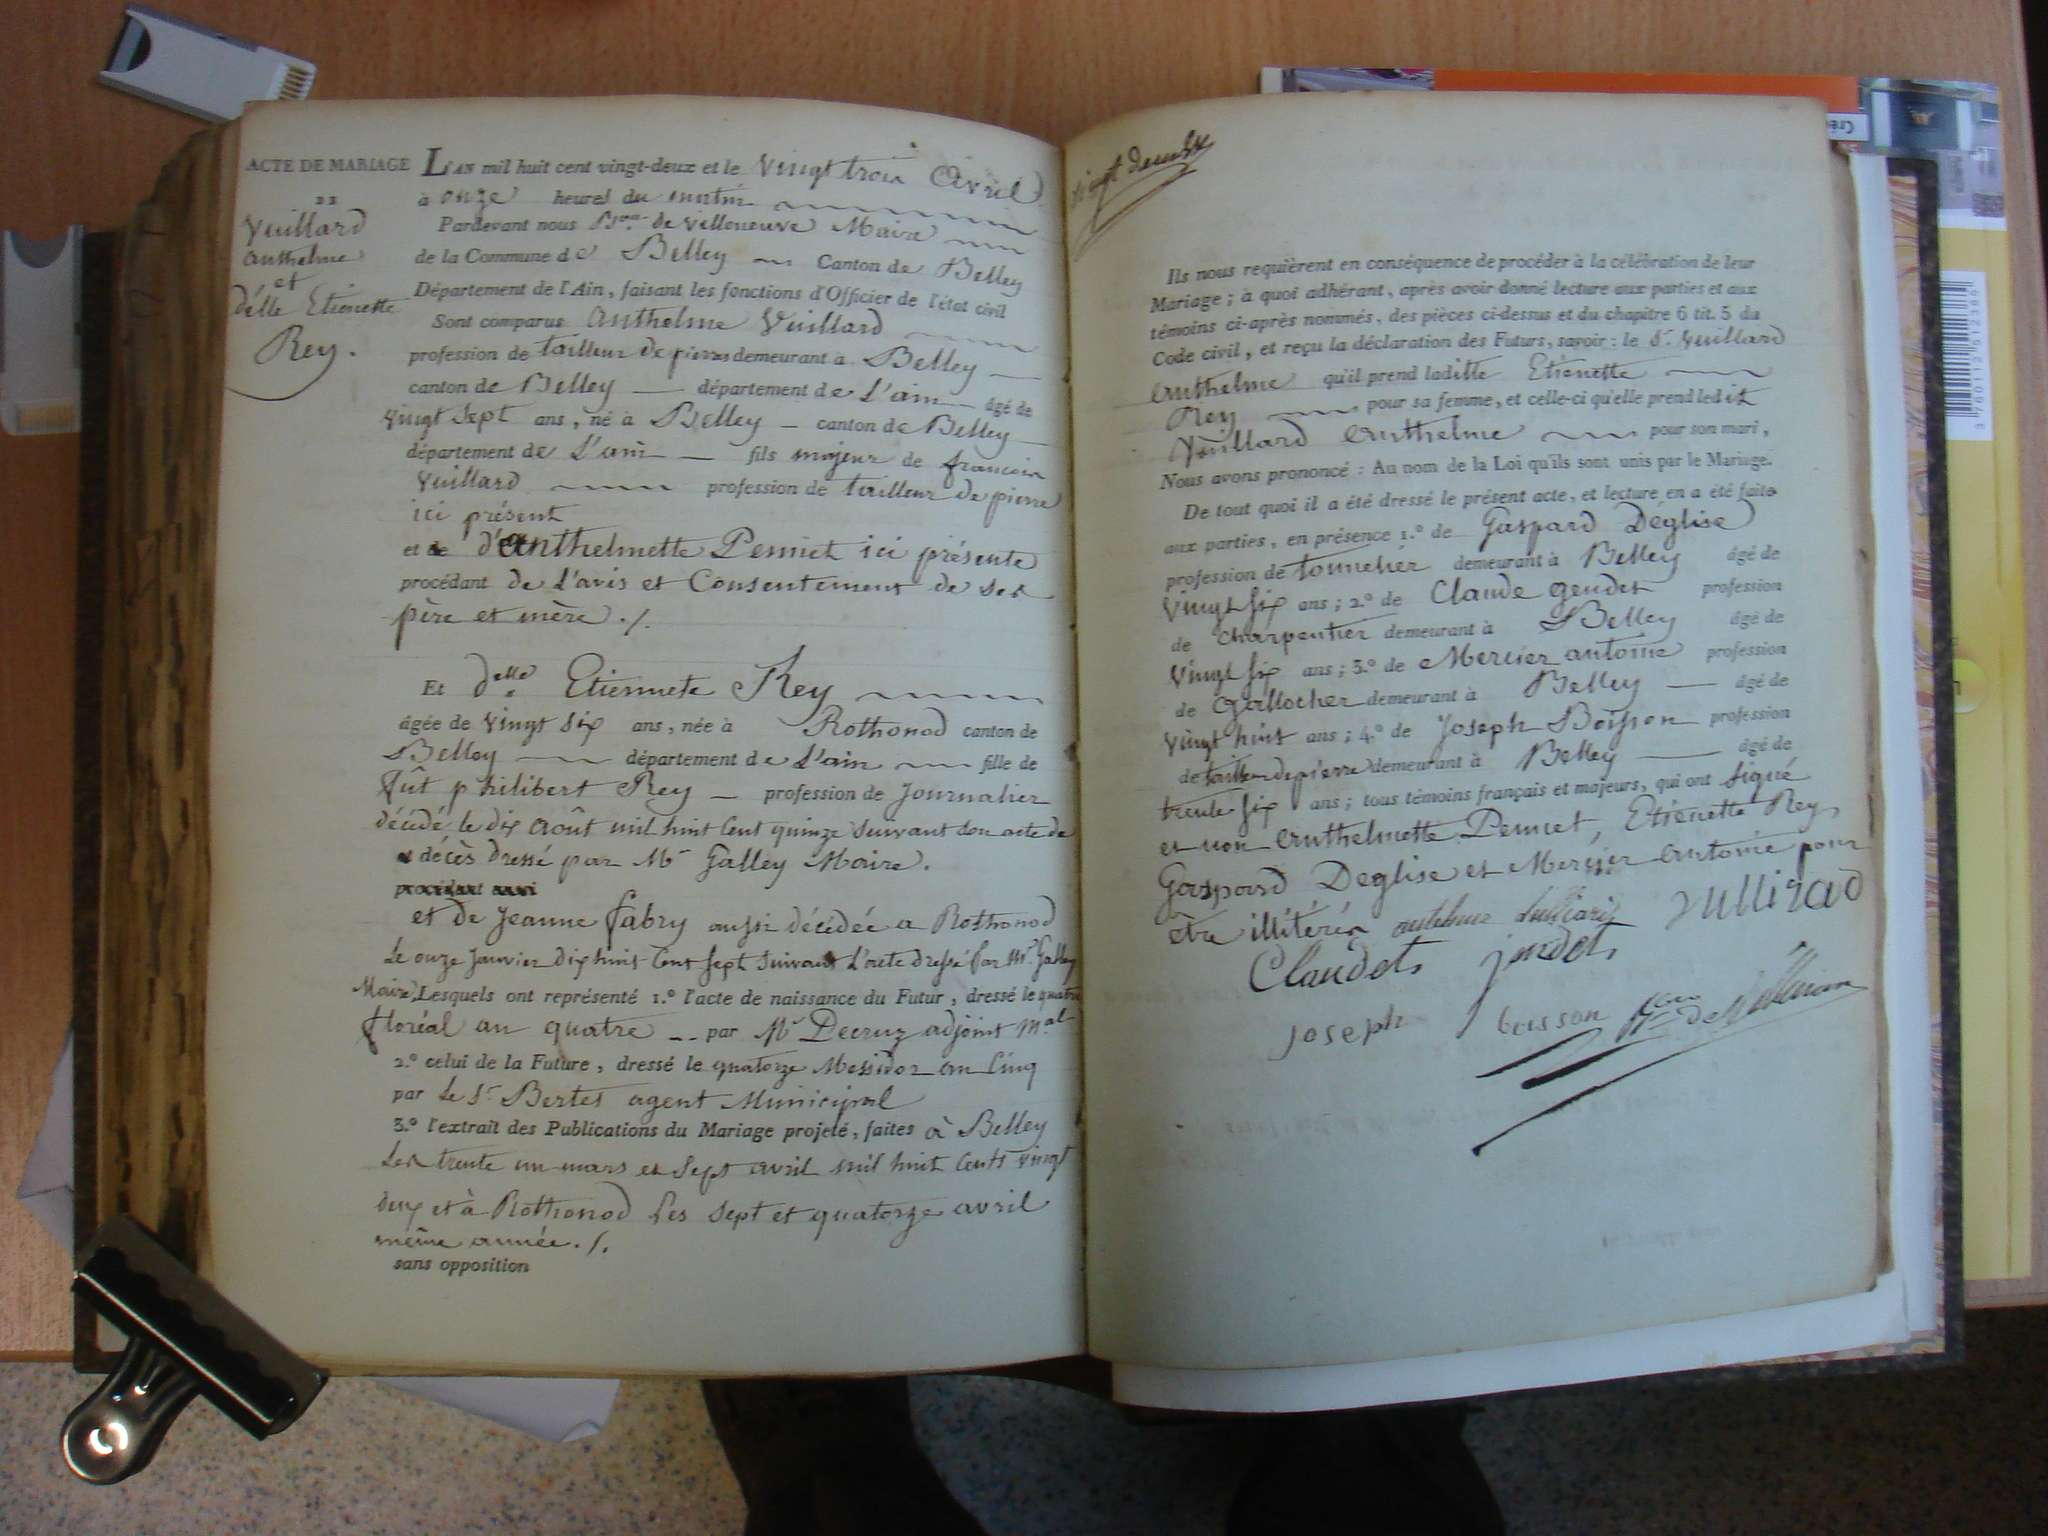 ACTE DE MARIAGE
DE
Vuillard
Anthelme
et
Délle Etienette
Rey.
L'AN mil huit cent vingt-deux et le vingt trois Avril
à onze heures du matin
Pardevant nous de Villeneuve Maire
de la Commune de Belley Canton de Belley
Département de l'Ain, faisant les fonctions d'Officier de l'état civil
Sont comparus Anthelme Vuillard
profession de tailleur de pierres demeurant à Belley
canton de Belley département de L'ain âgé de
vingt sept ans, né à Belley canton de Belley
département de L'ain fils majeur de francois
Vuillard profession de tailleur de pierre
ici présent
et de d'anthelmette Pennet ici présente
procédant de L'avis et Consentement de ses
père et mère ./.
Et delle Etiennete Rey
âgée de vingt six ans, née à Rothonod canton de
Belley département de L'ain fille de
fût philibert Rey profession de Journalier
décédé le dix Août mil huit Cent quinze suivant son acte de
décès dressé par Mr Galley Maire.
procédant
et de Jeanne fabry aussi décédée a Rothonod
Le onze Janvier dix huit Cent sept suivant L'acte dressé par Mr. Galley
Maire, Lesquels ont représenté 1.º l'acte de naissance du Futur, dressé le quatre
floréal an quatre par Mr Decruz adjoint mal
2.º celui de la Future, dressé le quatorze Messidor an Cinq
par Le Sr Bertet agent Municipal
3.º l'extrait des Publications du Mariage projeté, faites à Belley
Les trente un mars et sept avril mil huit Cents vingt
deux et à Rothonod Les sept et quatorze avril
même année ./.
sans opposition
vingt deux
Ils nous requièrent en conséquence de procéder à la célébration de leur
Mariage ; à quoi adhérant, après avoir donné lecture aux parties et aux
témoins ci-après nommés, des pièces ci-dessus et du chapitre 6 tit. 5 du
Code civil, et reçu la déclaration des Futurs, savoir : le Sr. Vuillard
Anthelme qu'il prend ladite Etienette
Rey pour sa femme, et celle-ci qu'elle prend ledit
Vuillard Anthelme pour son mari,
Nous avons prononcé : Au nom de la Loi qu'ils sont unis par le Mariage.
De tout quoi il a été dressé le présent acte, et lecture en a été faite
aux parties, en présence 1.º de Gaspard Déglise
profession de tonnelier demeurant à Belley âgé de
vingt six ans ; 2.º de Claude gendet profession
de Charpentier demeurant à Belley âgé de
vingt six ans ; 3.º de Mercier antoine profession
de Gallocher demeurant à Belley âgé de
vingt huit ans ; 4.º de Joseph Boisson profession
de tailleur de pierre demeurant à Belley âgé de
trente six ans ; tous témoins français et majeurs, qui ont signé
et non Anthelmette Pennet, Etienette Rey,
Gaspard Deglise et Mercier Antoine pour
être illitérés
Claudet jendet
Joseph boisson
Cré
3 760112 512380